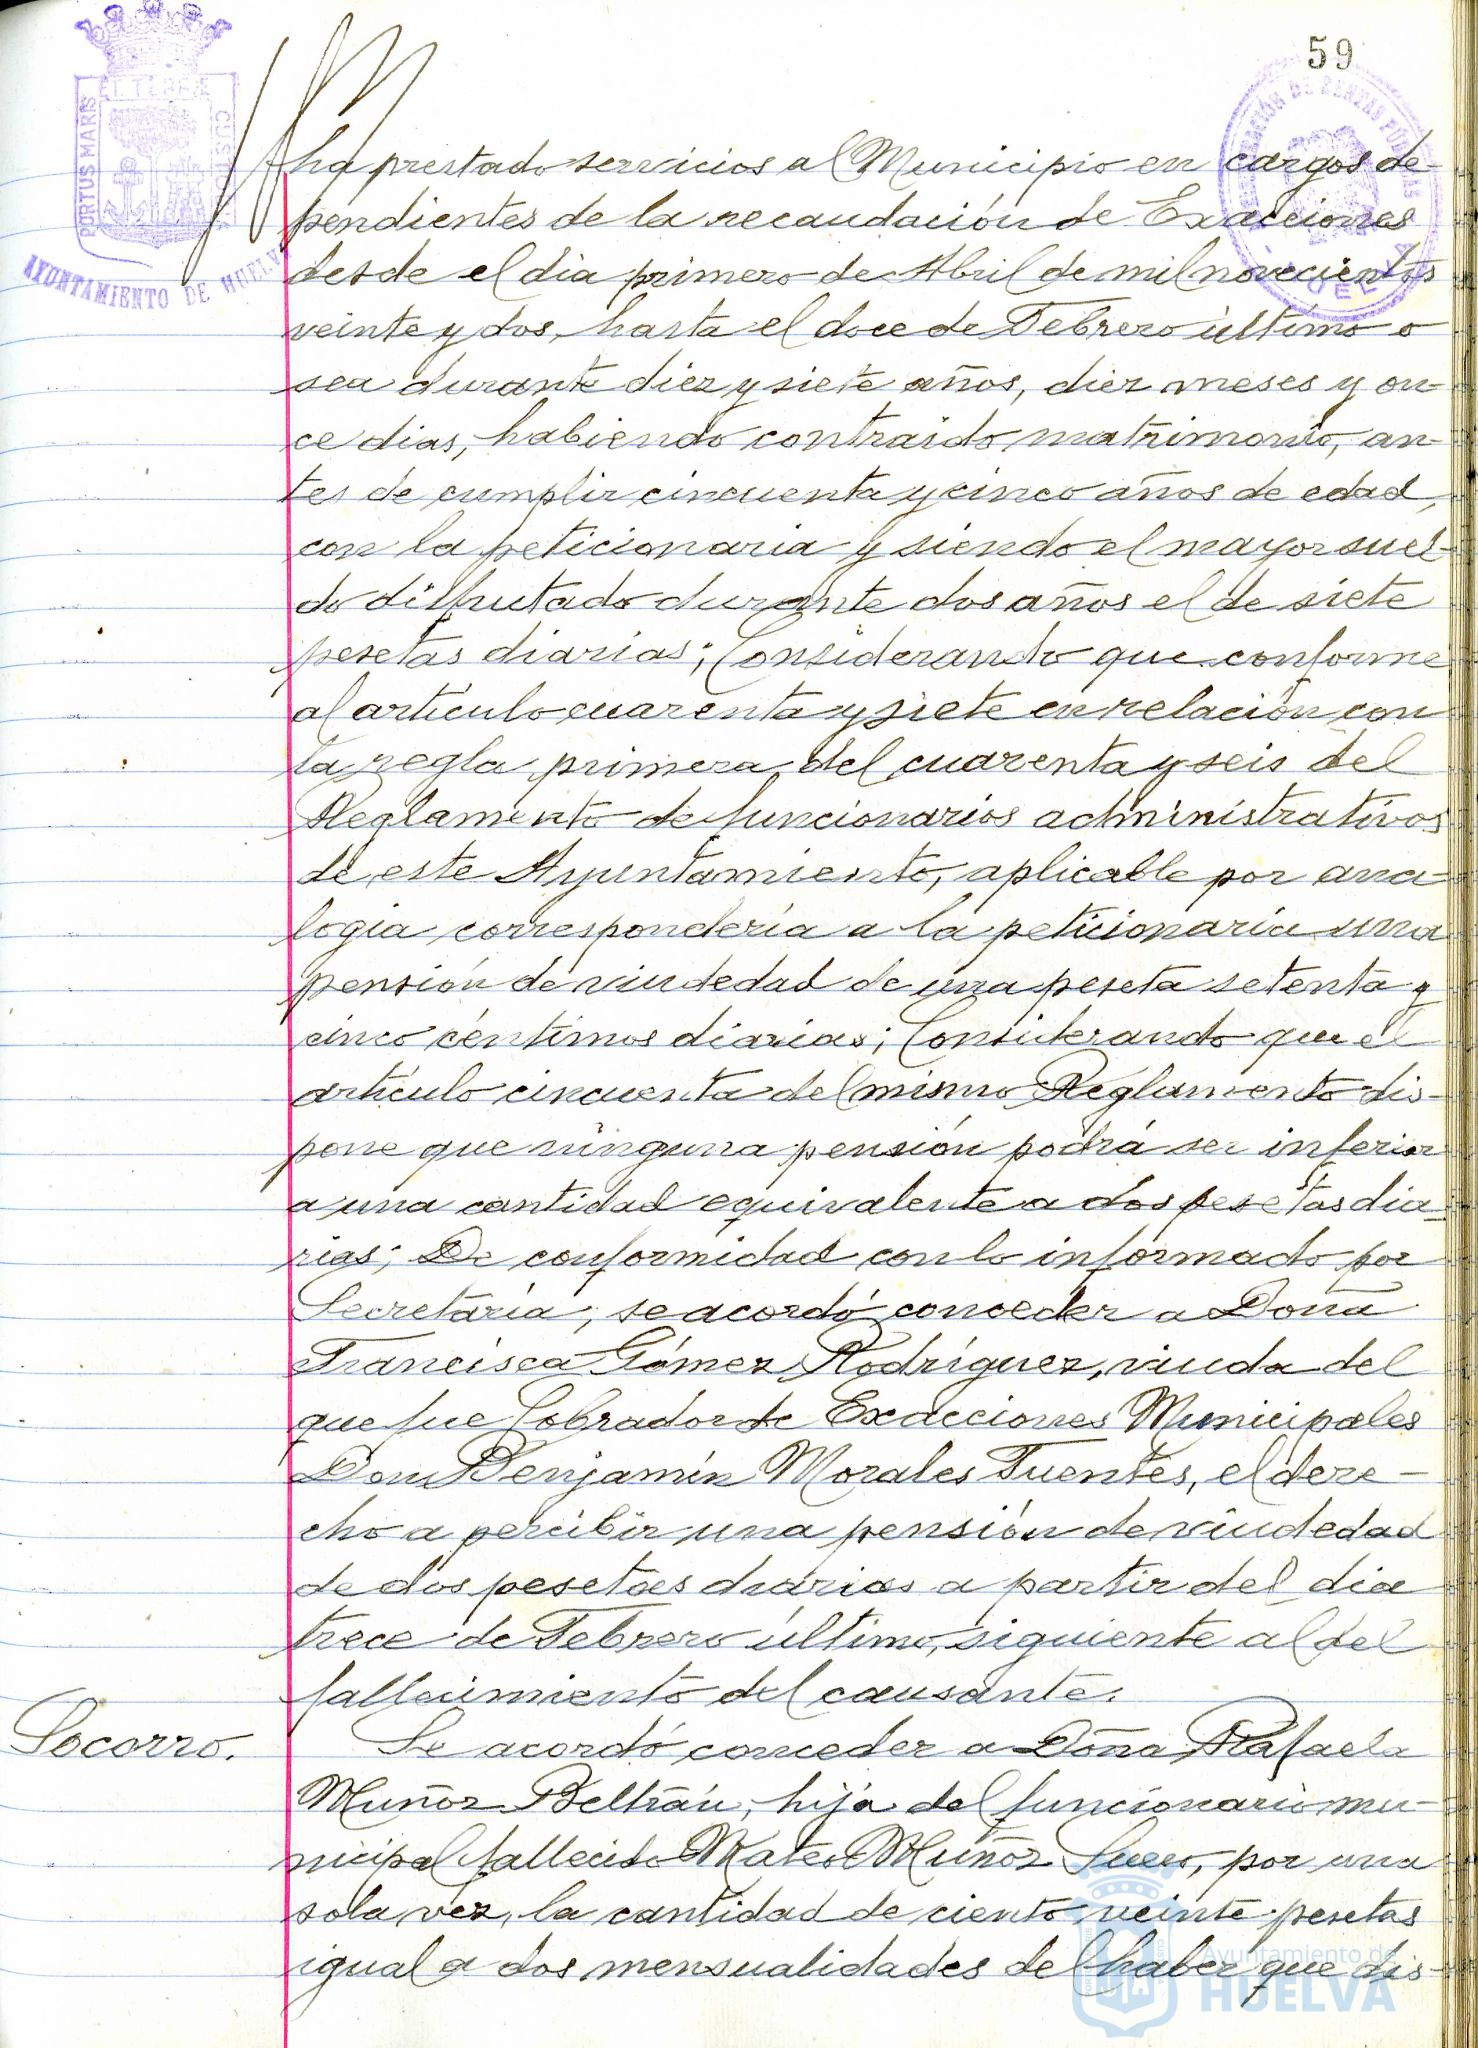 59
PORTUS MARIS
ET TERRÆ
CUSTODIA
AYUNTAMIENTO DE HUELVA
ha prestado servicios al Municipio en cargos de-
pendientes de la recaudación de Exacciones
desde el dia primero de Abril de mil novecientos
veinte y dos, hasta el doce de Febrero último o
sea durante diez y siete años, diez meses y on-
ce dias, habiendo contraido matrimonio, an-
tes de cumplir cincuenta y cinco años de edad,
con la peticionaria y siendo el mayor suel-
do disfrutado durante dos años el de siete
pesetas diarias; Considerando que conforme
al artículo cuarenta y siete en relación con
la regla primera del cuarenta y seis del
Reglamento de funcionarios administrativos
de este Ayuntamiento, aplicable por ana-
logia correspondería a la peticionaria una
pensión de viudedad de una peseta setenta y
cinco céntimos diarias; Considerando que el
artículo cincuenta del mismo Reglamento dis-
pone que ninguna pensión podrá ser inferior
a una cantidad equivalente a dos pesetas dia-
rias; De conformidad con lo informado por
Secretaría, se acordó conceder a Doña
Francisca Gómez Rodríguez, viuda del
que fue Cobrador de Exacciones Municipales
Don Benjamín Morales Fuentes, el dere-
cho a percibir una pensión de viudedad
de dos pesetas diarias a partir del dia
trece de Febrero último, siguiente al del
fallecimiento del causante.
Socorro. Se acordó conceder a Doña Rafaela
Muñoz Beltrán, hija del funcionario mu-
nicipal fallecido Mateo Muñoz, por una
sola vez, la cantidad de ciento veinte pesetas
igual a dos mensualidades del haber que dis-
Ayuntamiento de
HUELVA